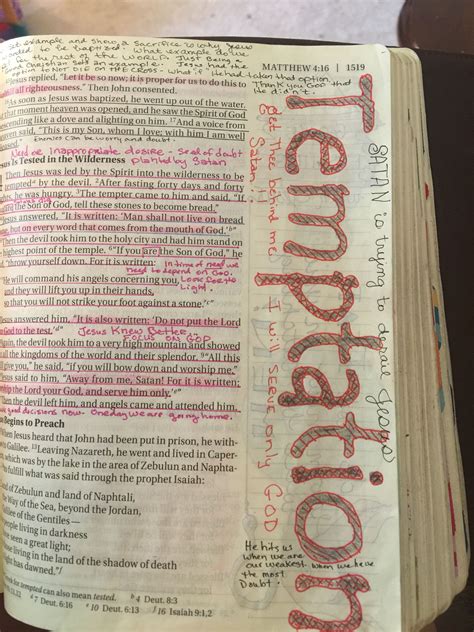 MATTHEW 4:16 | 1519
set example and show, a sacrifice to why Jesus
needed to be baptized. What example do we
for the rest of the WORLD. Just Being a
Christian sets an example. Jesus had the
option to NOT DIE ON THE CROSS - What if He had taken that option
Thank you God that
He didn't.
Jesus replied, "Let it be so now; it is proper for us to do this to
all righteousness." Then John consented.
"As soon as Jesus was baptized, he went up out of the water.
that moment heaven was opened, and he saw the Spirit of God
descending like a dove and alighting on him. 17And a voice from
heaven said, "This is my Son, whom I love; with him I am well
or inappropriate desire - Seed of doubt
planted by Satan
Jesus Is Tested in the Wilderness
Then Jesus was led by the Spirit into the wilderness to be
tempted by the devil. 2After fasting forty days and forty
he was hungry. 3The tempter came to him and said, "If
the Son of God, tell these stones to become bread."
Jesus answered, "It is written: 'Man shall not live on bread
but on every word that comes from the mouth of God.'b"
Then the devil took him to the holy city and had him stand on
highest point of the temple. 6"If you are the Son of God," he
"throw yourself down. For it is written:
in time of need we
need to depend on God.
"'He will command his angels concerning you,
and they will lift you up in their hands,
Light.
so that you will not strike your foot against a stone.'c"
Jesus answered him, "It is also written: 'Do not put the Lord
your God to the test.'d"
Jesus Knew Better
FOCUS ON GOD
Again, the devil took him to a very high mountain and showed
all the kingdoms of the world and their splendor. 9"All this
I will give you," he said, "if you will bow down and worship me."
Jesus said to him, "Away from me, Satan! For it is written:
'Worship the Lord your God, and serve him only.'e"
Then the devil left him, and angels came and attended him.
good decisions now. One day we are going home.
Begins to Preach
When Jesus heard that John had been put in prison, he with-
Galilee. 13Leaving Nazareth, he went and lived in Caper-
which was by the lake in the area of Zebulun and Naphta-
to fulfill what was said through the prophet Isaiah:
"Land of Zebulun and land of Naphtali,
the Way of the Sea, beyond the Jordan,
Galilee of the Gentiles—
people living in darkness
have seen a great light;
those living in the land of the shadow of death
light has dawned."f
for tempted can also mean tested.
b 4 Deut. 8:3
d 7 Deut. 6:16
e 10 Deut. 6:13
f 16 Isaiah 9:1,2
Temptation
SATAN is trying to derail Jesus
Get Thee behind me, I will serve only GOD
Satan!!
He hits us
when we are
our weakest. when we have
the most
Doubt.